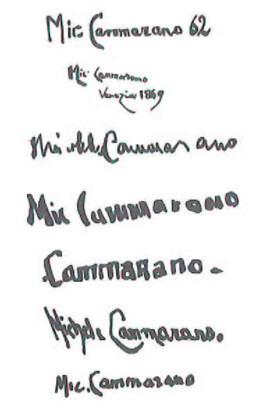 Mic Cammarano 62
Mic Cammarano
Venezia 1869
Michele Cammarano
Mic Cammarano
Cammarano.
Michele Cammarano.
Mic. Cammarano